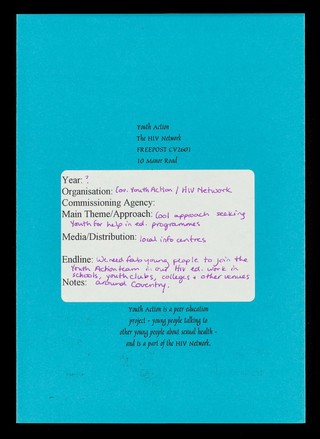 Youth Action
The HIV Network
FREEPOST CV2601
10 Manor Road
Year: ?
Organisation: Cov. Youth Action / HIV Network
Commissioning Agency:
Main Theme/Approach: Cool approach seeking
Youth for help in ed. programmes
Media/Distribution: local info centres
Endline: We need fab young people to join the
Youth Action team in our HIV ed. work in
schools, youth clubs, colleges + other venues
Notes: around Coventry.
Youth Action is a peer education
project - young people talking to
other young people about sexual health -
and is a part of the HIV Network.